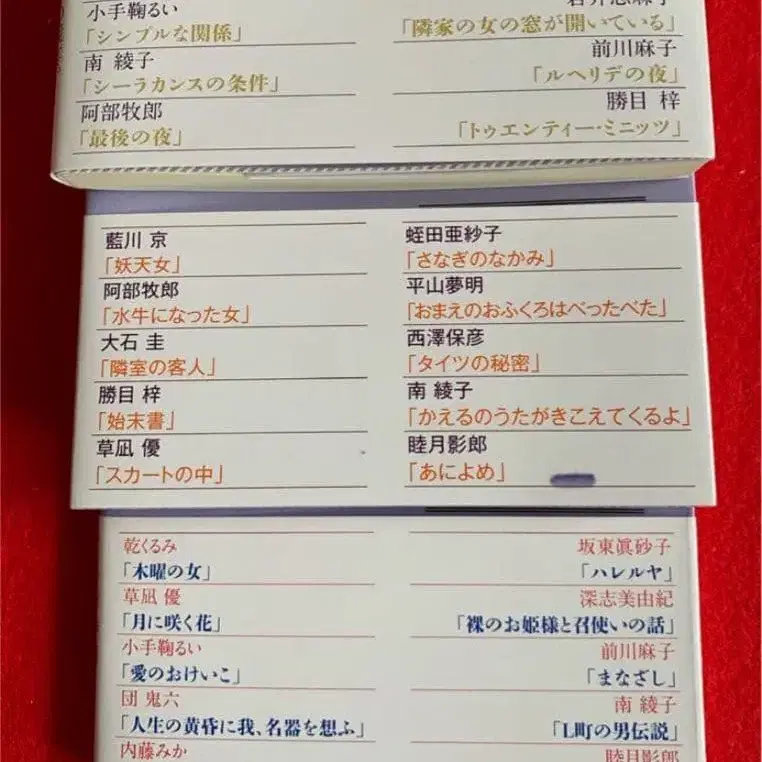 小手鞠るい
「シンプルな関係」
南 綾子
「シーラカンスの条件」
阿部牧郎
「最後の夜」
「隣家の女の窓が開いている」
前川麻子
「ルヘリデの夜」
勝目 梓
「トゥエンティー・ミニッツ」
藍川 京
「妖天女」
阿部牧郎
「水牛になった女」
大石 圭
「隣室の客人」
勝目 梓
「始末書」
草凪 優
「スカートの中」
蛭田亜紗子
「さなぎのなかみ」
平山夢明
「おまえのおふくろはべったべた」
西澤保彦
「タイツの秘密」
南 綾子
「かえるのうたがきこえてくるよ」
睦月影郎
「あによめ」
乾くるみ
「木曜の女」
草凪 優
「月に咲く花」
小手鞠るい
「愛のおけいこ」
団 鬼六
「人生の黄昏に我、名器を想ふ」
内藤みか
坂東眞砂子
「ハレルヤ」
深志美由紀
「裸のお姫様と召使いの話」
前川麻子
「まなざし」
南 綾子
「L町の男伝説」
睦月影郎